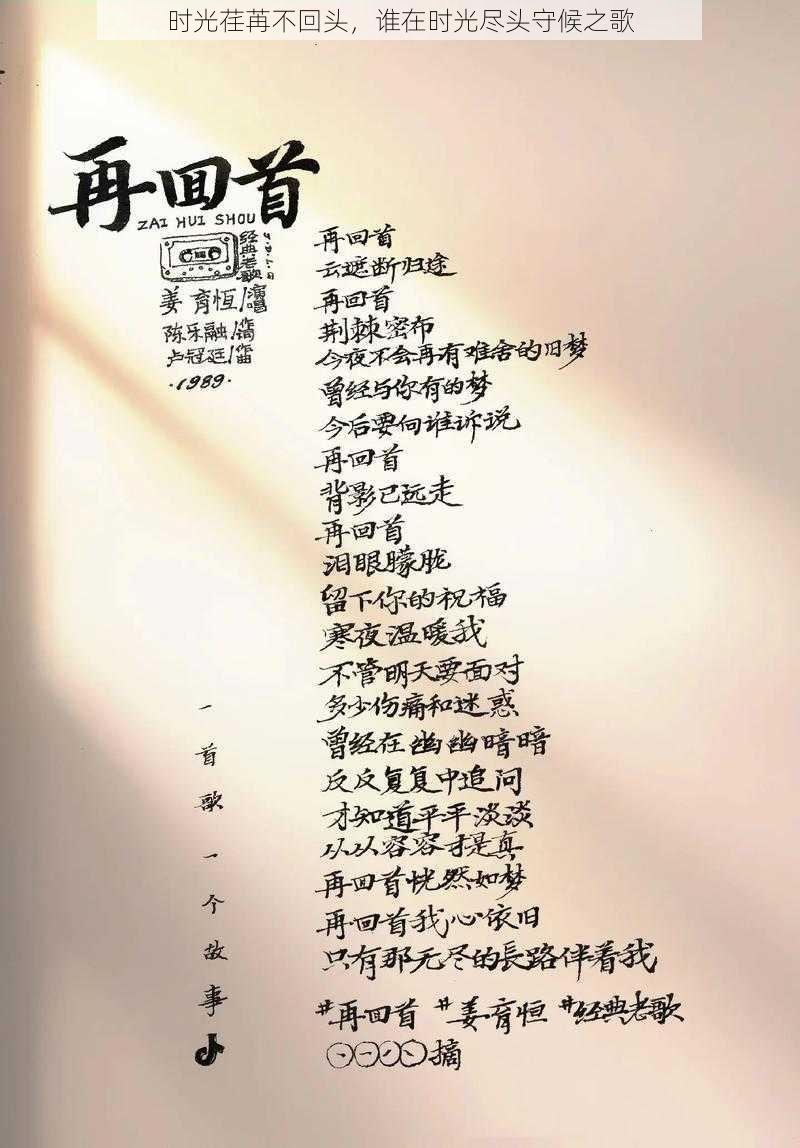 时光荏苒不回头，谁在时光尽头守候之歌
再回首
ZAI HUI SHOU
经典老歌
姜育恒/演唱
陈乐融/作词
卢冠廷/作曲
·1989·
再回首
云遮断归途
再回首
荆棘密布
今夜不会再有难舍的旧梦
曾经与你有的梦
今后要向谁诉说
再回首
背影已远走
再回首
泪眼朦胧
留下你的祝福
寒夜温暖我
不管明天要面对
多少伤痛和迷惑
曾经在幽幽暗暗
反反复复中追问
才知道平平淡淡
从从容容才是真
再回首恍然如梦
再回首我心依旧
只有那无尽的長路伴着我
#再回首 #姜育恒 #经典老歌
摘
一首歌一个故事